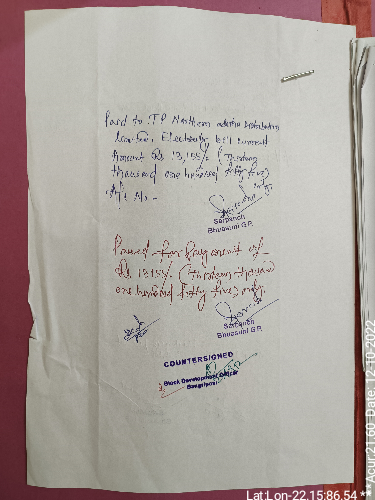 Paid to TP Northern odisha Distribution
Limited, Electricity bill current
Amount Rs 13,155/- (Thirteen
thousand one hundred fifty five)
only
Sarpanch
Bhuasuni G.P.
Passed for Payment of
Rs 13155/- (Thirteen thousand
one hundred fifty five only.
Sarpanch
Bhuasuni G.P.
COUNTERSIGNED
Block Development Officer
Lat:Lon-22.15:86.54
***Acur:21.60 Date: 12-10-2022